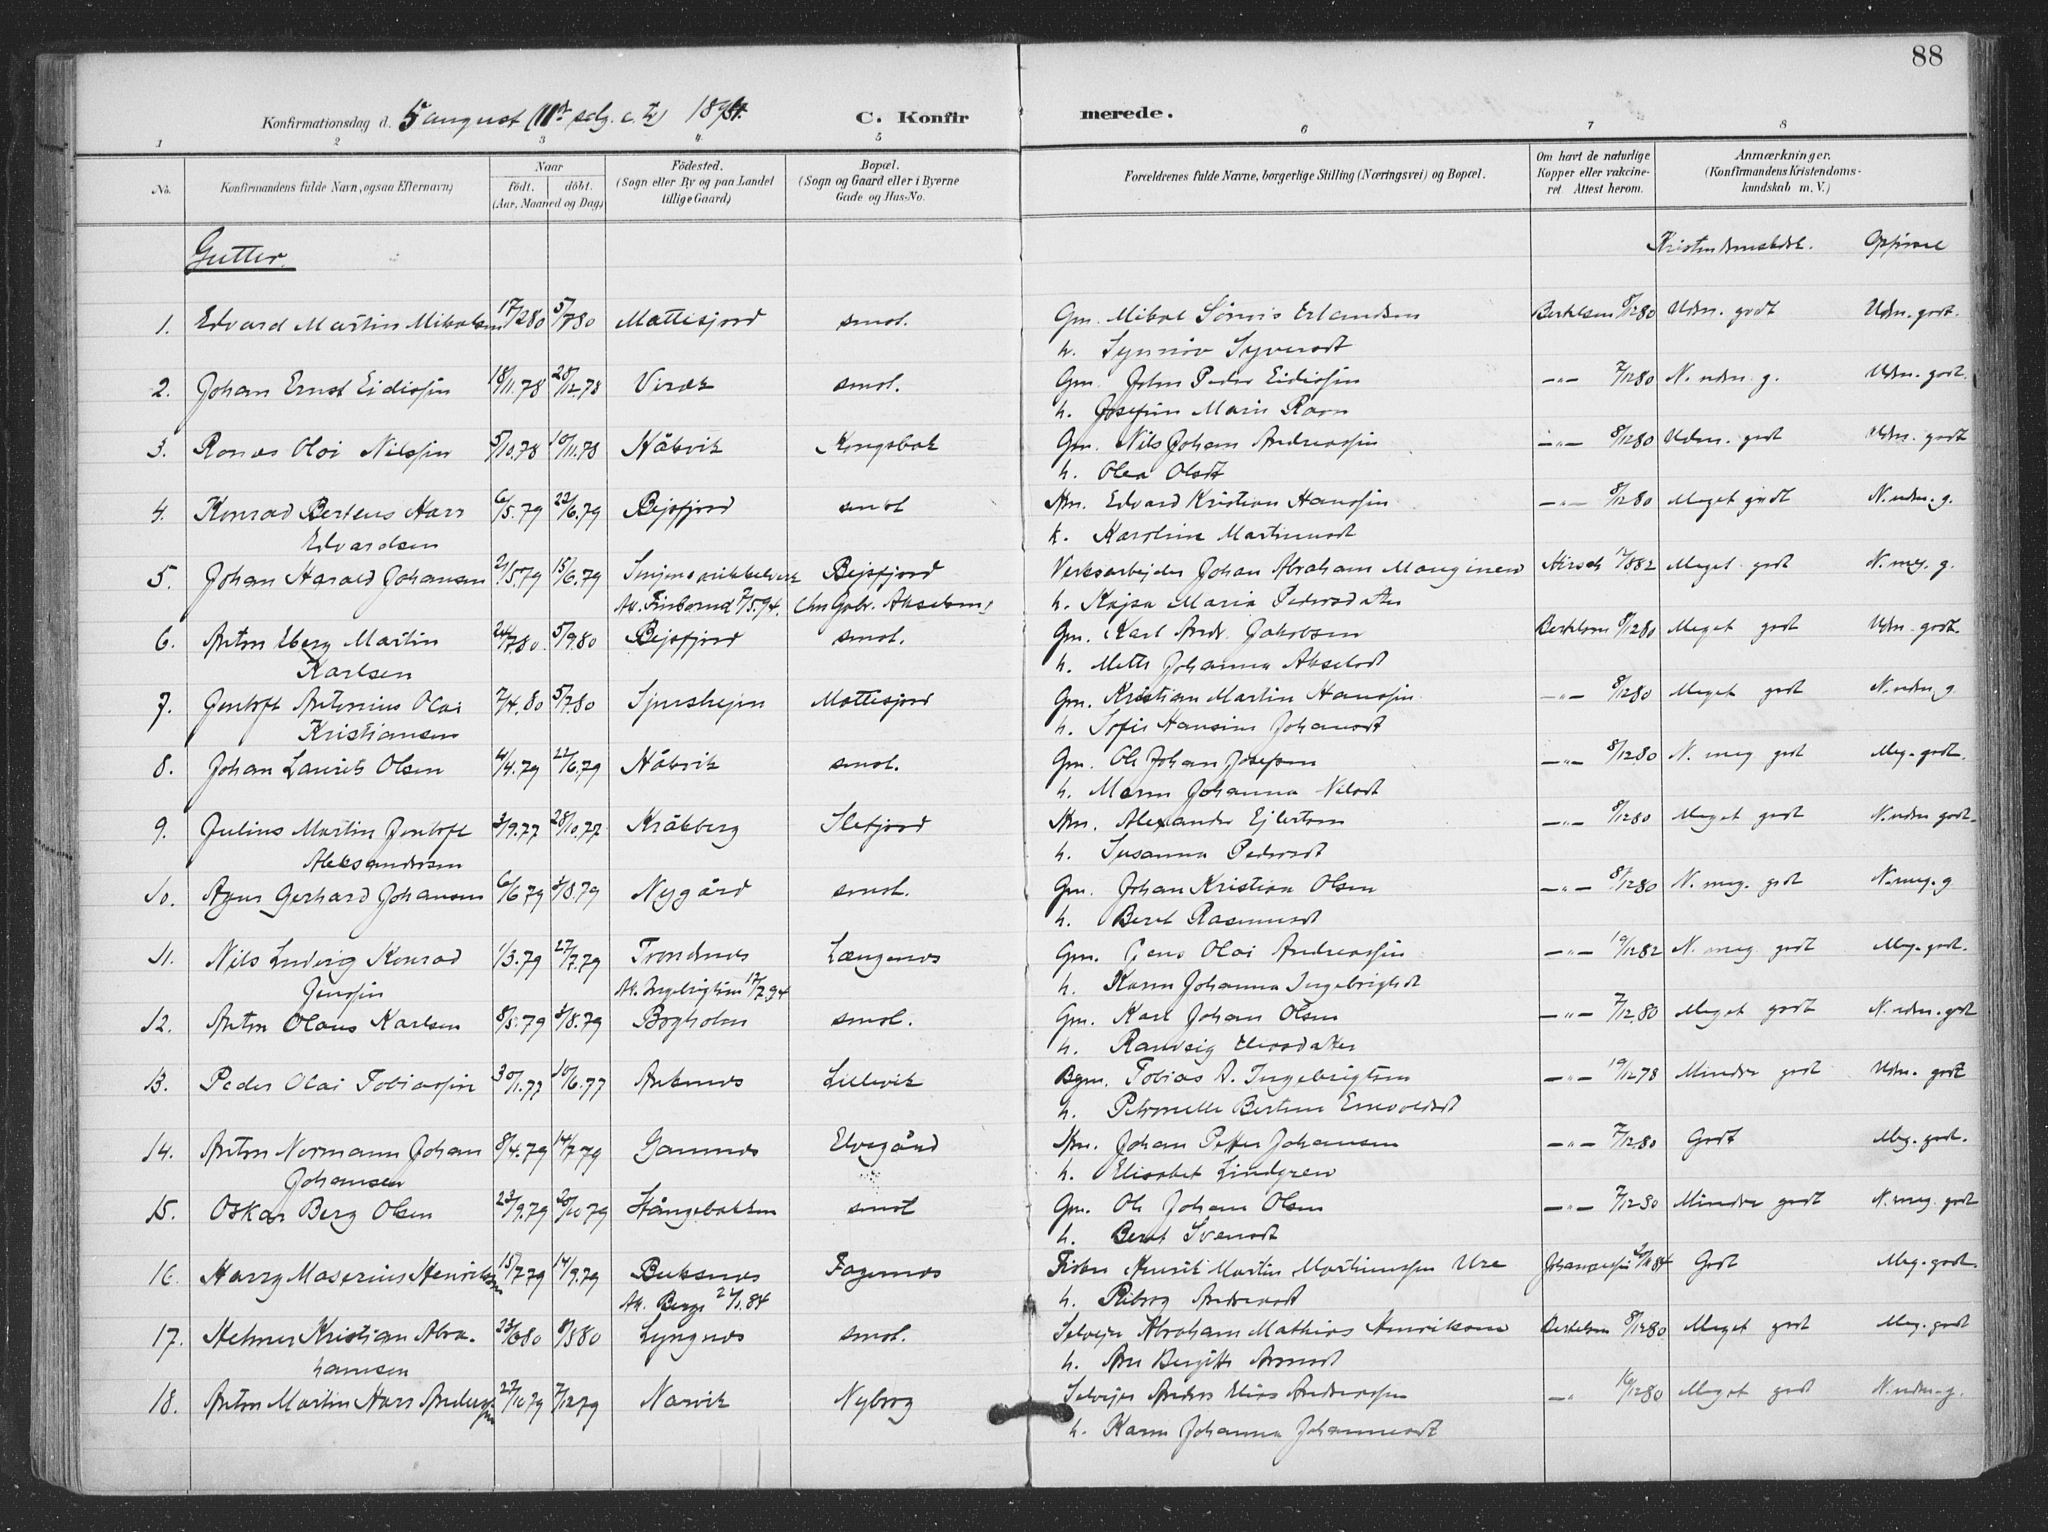 88
Konfirmationsdag d. 5 august 1894. C. Konfirmerede.
1 2 3 4 5 6 7 8
No.
Konfirmandens fulde Navn, ogsaa Efternavn)
Naar
födt. döbt.
(Aar, Maaned og Dag)
Födested.
(Sogn eller By og paa Landet
tillige Gaard)
Bopæl.
(Sogn og Gaard eller i Byerne
Gade og Hus-No.
Forældrenes fulde Navne, borgerlige Stilling (Næringsvei) og Bopæl.
Om havt de naturlige
Kopper eller vakcine-
ret. Attest herom.
Anmærkninger.
(Konfirmandens Kristendoms-
kundskab m. V.)
Gutter.
1. Edvard Martin Mikalsen 17/2 80 5/7 80 Mattisfjord smst. Gm. Mikal Erlandsen Berthelsen 8/12 80 Udm. godt Udm. godt.
h. Synnöv Syversdt
2. Johan Ernst Eidissen 18/11.78 28/12.78 Virak smst. Gm. John Peder Eidissen —„— 7/12 80 N. udm. g. Udm. godt.
h. Josefine Marie Ravn
3. Olai Nilssen 5/10.78 10/11.78 Håkvik Kongsbak Gm. Nils Johan Andreassen —„— 8/12 80 Udm. godt Udm. godt
h. Olea Olsdt
4. Konrad Berteus Hars 6/5.79 22/6.79 Bejsfjord smst Edvard Kristian Hanssen —„— 8/12 80 Meget godt N. udm. g.
Edvardsen h. Karoline Martinusdt
5. Johan Harald Johansen 21/5.79 15/6.79 Bejsfjord Verksarbejder Johan Abraham Hirsch 82 Meget godt N. meg. g.
7/5.94. Gabr. Akselsen h. Kajsa Maria Pedersdatter
6. Anton Eberg Martin 24/7.80. 5/9.80 Bejsfjord smst. Gm. Karl Andr. Jakobsen Berthelsen 8/12 80 Meget godt Udm. godt.
Karlsen h. Mette Johanna Akselsdt
7. Jentoft Antonius Olai 7/4.80 5/7.80 Mattisfjord Gm. Kristian Martin Hanssen —„— 8/12 80 Meget godt N. udm. g
Kristiansen h. Sofie Hansine Johansdt
8. Johan Laurits Olsen 4/4.79 22/6.79 Håkvik smst. Gm. Ole Johan Josefsen —„— 8/12.80 N. meg godt Meg. godt.
h. Maren Johanna Nilsdt
9. Julius Martin Jentoft 3/9.77 28/10.77 Kråkberg Slefjord Alexander Ejlertsen —„— 8/12 80 Meget godt N. udm godt.
Aleksandersen h. Susanna Pedersdt
10. Gerhard Johansen 6/6.79 3/8.79 Nygård smst. Gm. Johan Kristian Olsen —„— 8/12 80 N. meg. godt N. meg. g
h. Beret Rasmusdt
11. Nils Ludvig Konrad 1/3.79 27/7.79 Trondenes Længenes Gm. Jens Olai Andreassen —„— 19/12 82 N. meg godt Meg. godt.
Jenssen At. Ingebrigtsen 17/7.94 h. Karen Johanna Ingebrigtsdt
12. Anton Olaus Karlsen 8/5.79 3/8.79 Bogholm smst. Gm. Karl Johan Olsen —„— 7/12.80 Meget godt N. udm. godt
h. Ranveig
13. Peder Olai Tobiassen 30/1.77 10/6.77 Ankenes Lillevik Tobias A. Ingebrigtsen —„— 19/12 78 Mindre godt Udm. godt
h. Petronelle Enevoldsdt
14. Anton Normann Johan 8/4.79 14/7.79 Elvegård Johan Petter Johansen —„— 7/12.80 Godt Meg. godt.
Johansen h. Elisabet Lindgren
15. Oskar Berg Olsen 23/9.79 20/10 79 smst Gm. Ole Johan Olsen —„— 7/12 80 Mindre godt N. meg. godt
h. Beret Svensdt
16. Harry Maserius Henriksen 15/7.79 14/9.79 Buksnes Fagernes Henrik Martin Martinussen Ure 84 Godt Meg. godt.
At. Berge 84 h. Andreasdt
17. Helmer Kristian Abra- 23/6 80 8/8 80 Lyngnes smst. Selvejer Abraham Mathias Henriksen Berthelsen 8/12 80 Meget godt Meg. godt
hamsen h. Ane Bergitte
18. Anton Martin Hars Anderssen 27/10 79 7/12 79 Narvik Nyborg Selvejer Anders Elias Andreassen —„ 16/12 80 Meget godt N. udm. g.
h. Karen Johanna Johannesdt